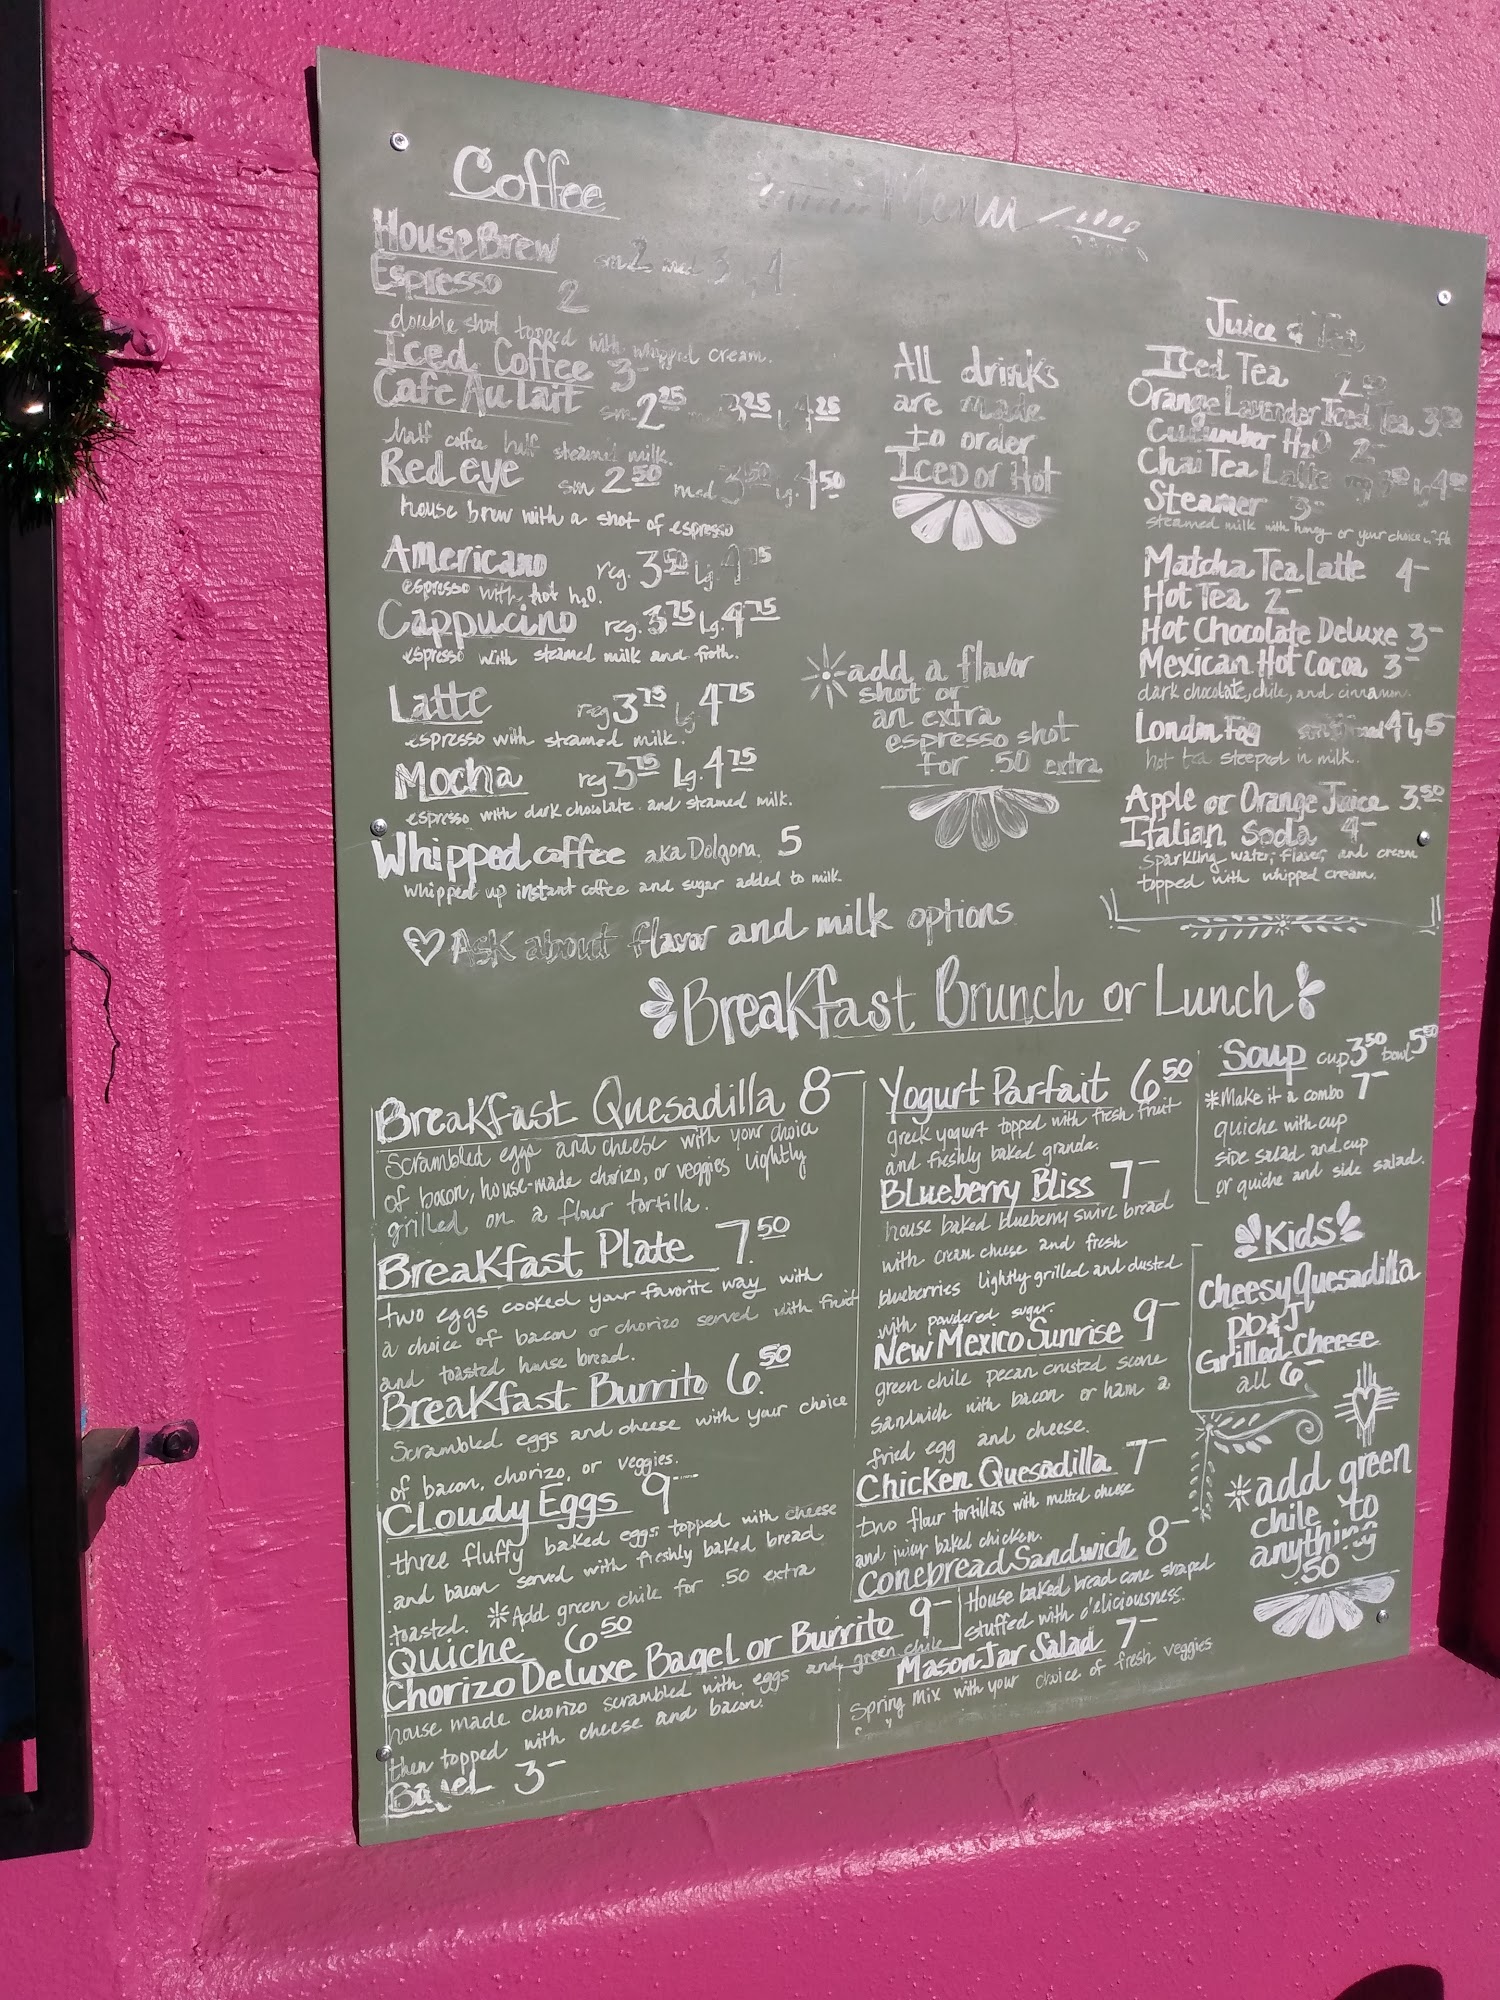 Menu
Coffee
House Brew sm 2 med 3 4
Espresso 2
double shot topped with whipped cream.
Iced Coffee 3-
Cafe Au Lait sm 2 25 3 25 4 25
half coffee half steamed milk.
Red eye sm 2 50 med 3 50 lg. 4 50
house brew with a shot of espresso
Americano reg. 3 50 lg. 4 75
espresso with hot h2o.
Cappucino reg. 3 75 lg. 4 75
espresso with steamed milk and froth.
Latte reg 3 75 lg 4 75
espresso with steamed milk.
Mocha reg 3 75 lg. 4 75
espresso with dark chocolate and steamed milk.
Whipped coffee aka Dolgona. 5
whipped up instant coffee and sugar added to milk.
♡ Ask about flavor and milk options
All drinks
are made
to order
Iced or Hot
*add a flavor
shot or
an extra
espresso shot
for .50 extra
Juice & Tea
Iced Tea 2 50
Orange Lavender Iced Tea 3.50
Cucumber H2O 2-
Chai Tea Latte 3 50 lg 4 50
Steamer 3-
steamed milk with honey or your choice
Matcha Tea Latte 4-
Hot Tea 2-
Hot Chocolate Deluxe 3-
Mexican Hot Cocoa 3-
dark chocolate, chile, and cinnamon.
London Fog 4- lg 5-
hot tea steeped in milk.
Apple or Orange Juice 3.50
Italian Soda 4-
sparkling water, flavor, and cream
topped with whipped cream.
Breakfast Brunch or Lunch
Breakfast Quesadilla 8-
Scrambled eggs and cheese with your choice
of bacon, house-made chorizo, or veggies lightly
grilled on a flour tortilla.
Breakfast Plate 7.50
two eggs cooked your favorite way with
a choice of bacon or chorizo served with fruit
and toasted house bread.
Breakfast Burrito 6.50
Scrambled eggs and cheese with your choice
of bacon, chorizo, or veggies.
Cloudy Eggs 9-
three fluffy baked eggs topped with cheese
and bacon served with freshly baked bread
toasted. *Add green chile for .50 extra
Quiche 6 50
Chorizo Deluxe Bagel or Burrito 9-
house made chorizo scrambled with eggs and green chile
then topped with cheese and bacon.
Bagel 3-
Yogurt Parfait 6 50
greek yogurt topped with fresh fruit
and freshly baked granola.
Blueberry Bliss 7-
house baked blueberry swirl bread
with cream cheese and fresh
blueberries lightly grilled and dusted
with powdered sugar.
New Mexico Sunrise 9-
green chile pecan crusted scone
sandwich with bacon or ham a
fried egg and cheese.
Chicken Quesadilla 7-
two flour tortillas with melted cheese
and juicy baked chicken.
Conebread Sandwich 8-
House baked bread cone shaped
stuffed with deliciousness.
Mason Jar Salad 7-
Spring Mix with your choice of fresh veggies
Soup cup 3 50 bowl 5 50
*Make it a combo 7-
quiche with cup
side salad and cup
or quiche and side salad.
Kids
Cheesy Quesadilla
pb&J
Grilled Cheese
all 6-
*add green
chile to
anything
.50